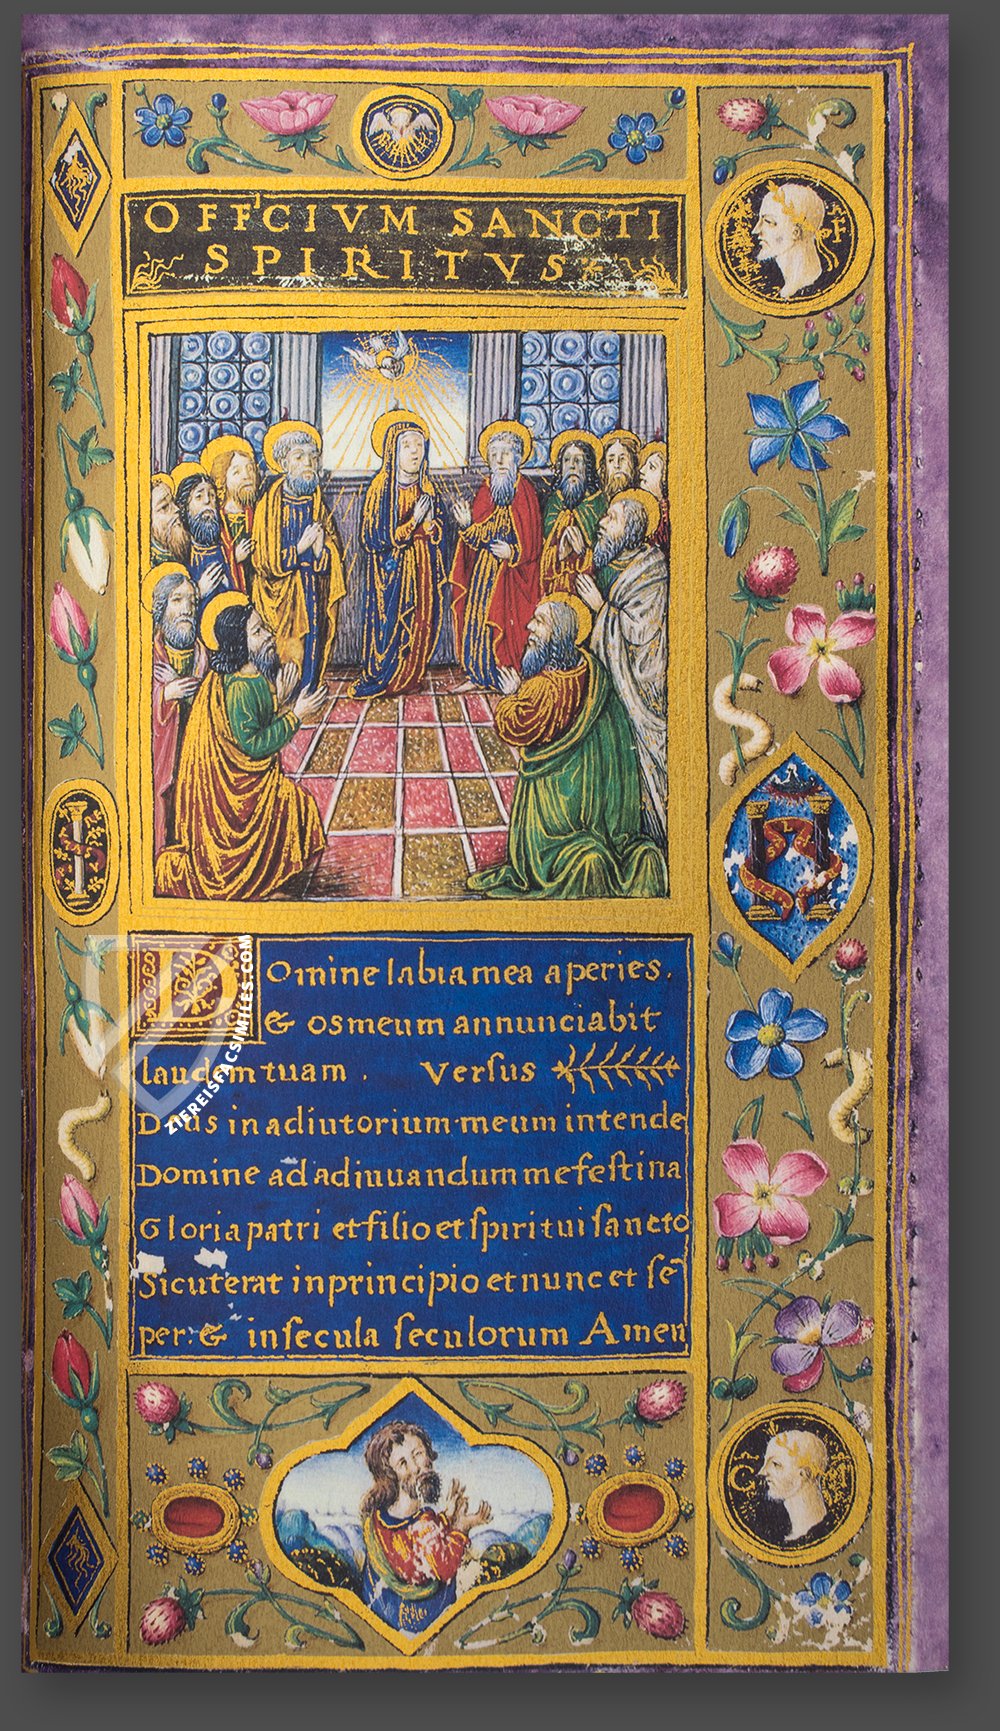 OFFICIVM SANCTI
SPIRITVS
F
Domine labia mea aperies.
& os meum annunciabit
laudem tuam. Versus
Deus in adiutorium meum intende
Domine ad adiuuandum me festina
Gloria patri et filio et spiritui sancto
Sicut erat in principio et nunc et se~
per: & in secula seculorum Amen
C
ZIEREISFACSIMILES.COM